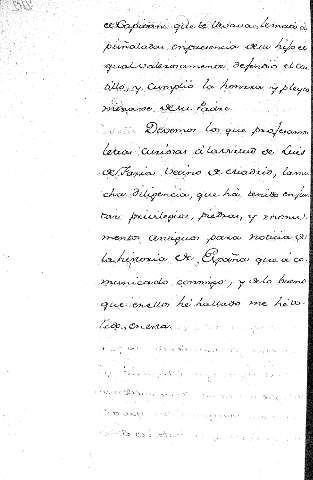 el Capitan que le llevava, le mató a
puñaladas, en presencia de su hijo el
qual valerosamente defendió el cas
tillo, y cumplio la honrra y pleyto
menaxe de su Padre.
Devemos los que profesamos
letras curiosas á la virtud de Luis
de Faria vecino de Madrid, la mu
cha diligencia, que há tenido en jun
tar privilegios, piedras, y monu
mentos antiguos para noticia de
la historia de España que á co
municado conmigo, y de lo bueno
que en ellos hé hallado me hé va
lido, en esta